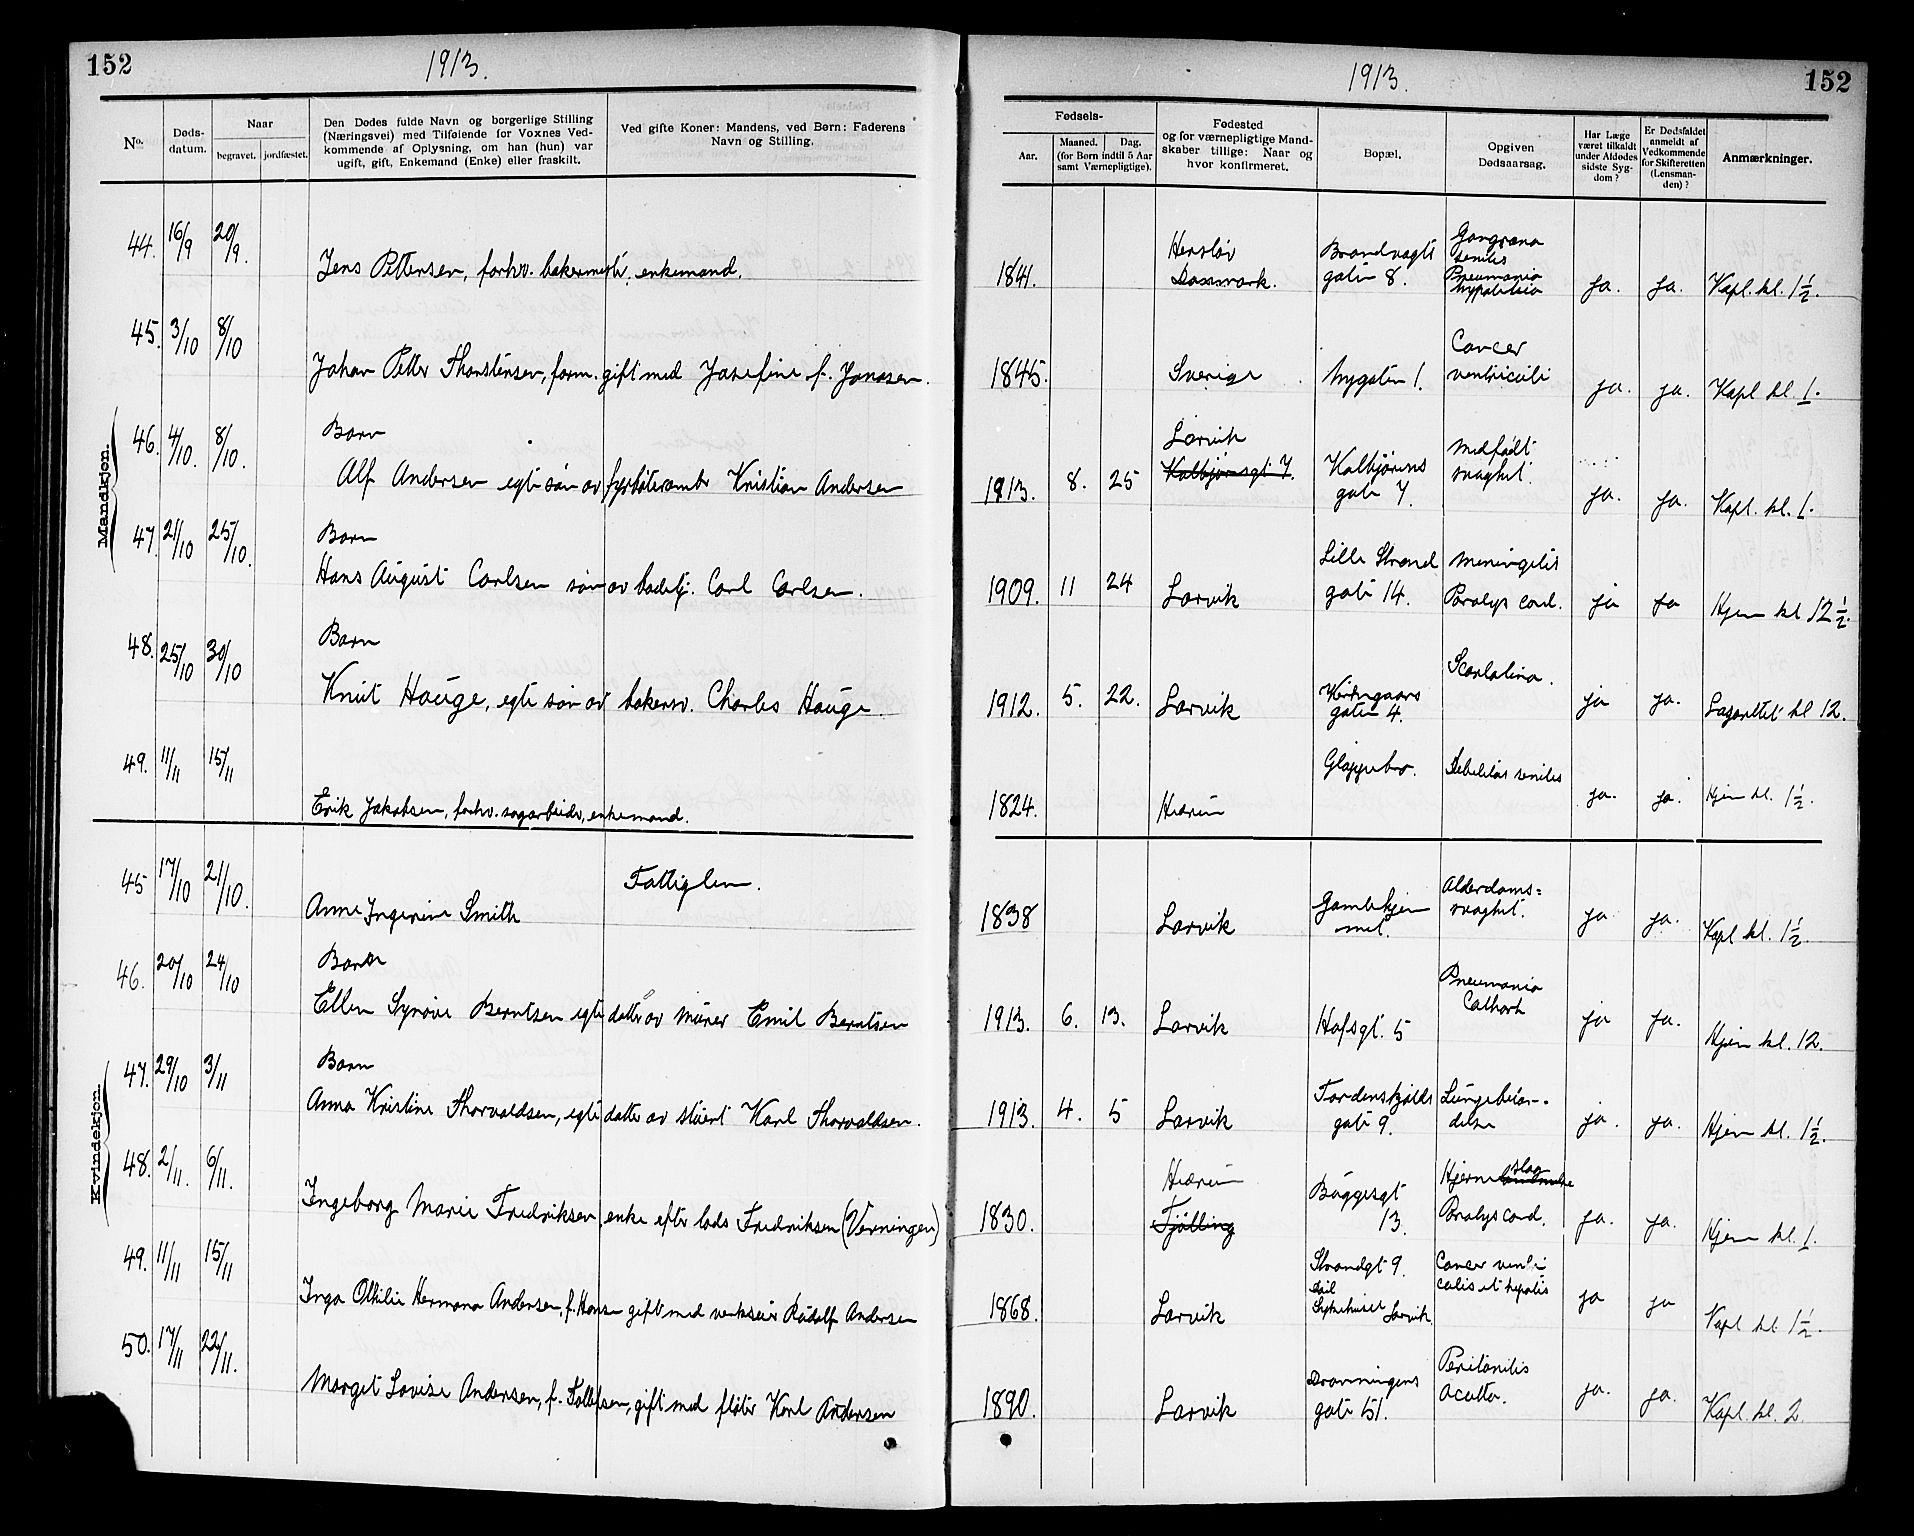 152
1913.
No.
Døds-
datum.
Naar
begravet. jordfæstet.
Den Dødes fulde Navn og borgerlige Stilling
(Næringsvei) med Tilføiende for Voxnes Ved-
kommende af Oplysning, om han (hun) var
ugift, gift, Enkemand (Enke) eller fraskilt.
Ved gifte Koner: Mandens, ved Børn: Faderens
Navn og Stilling.
Mandkjøn.
44. 16/9 20/9.
Jens Pettersen, forhv. bakermestr, enkemand.
45. 3/10 8/10
Johan Petter Thorstensen, form. gift med Josefine f. Jonasen.
46. 4/10. 8/10.
Barn
Alf Andersen egte søn av fyrbøter Kristian Andersen
47. 21/10 25/10.
Barn
Hans August Carlsen søn av Carl Carlsen.
48. 25/10 30/10
Barn
Knut Hauge, egte søn av bakersv. Charles Hauge.
49. 11/11 15/11
Erik Jakobsen, forhv. sagarbeider, enkemand.
Kvindekjøn.
45 17/10 21/10.
Fattiglem.
Anne Ingerine Smith
46. 20/10 24/10
Barn
Ellen Synøve Berntsen egte datter av murer Emil Berntsen
47. 29/10 3/11
Barn
Anna Kristine Thorvaldsen, egte datter av stuert Karl Thorvaldsen.
48. 2/11. 6/11.
Ingeborg Marie Fredriksen, enke efter lods Fredriksen (Verningen)
49. 11/11 15/11
Inga Othilie Hermana Andersen, f. Hansen gift med verkseier Rudolf Andersen
50. 17/11 22/11.
Margit Lovise Andersen, f. Tollefsen, gift med fløter Karl Andersen
1913.
152
Fødsels-
Aar.
Maaned. Dag.
(for Børn indtil 5 Aar
samt Værnepligtige).
Fødested
og for værnepligtige Mand-
skaber tillige: Naar og
hvor konfirmeret.
Bopæl.
Opgiven
Dødsaarsag.
Har Læge
været tilkaldt
under Afdødes
sidste Syg-
dom?
Er Dødsfaldet
anmeldt af
Vedkommende
for Skifteretten
(Lensman-
den)?
Anmærkninger.
1841. Hersløv
Danmark. Brandvagts
gaten 8. Gangræna
senilis
Pneumonia
ja. ja. Kapl. kl. 1½.
1845. Sverige Nygaten 1. Cancer
ventriculi ja. ja. Kapl kl 1.
1913. 8. 25 Larvik
Kolbjørnsgt 7. Kolbjørns
gate 7. Medfødt
svaghet. ja. ja. Kapl. kl. 1.
1909. 11 24 Larvik Lille Strand
gate 14. Meningitis
Paralys cord. ja ja Hjem kl 12½.
1912. 5. 22. Larvik
gaten 4. Scarlatina. ja ja. Lazarettet kl 12.
1824. Hedrum Gloppebro. Debilitas senilis ja. ja. Hjem kl. 1½.
1838 Larvik Gamlehjem
met. Alderdoms=
svaghet. ja ja. Kapl kl. 1½.
1913. 6. 13. Larvik Hofsgt. 5 Pneumonia
Cathar ja ja. Hjem kl. 12.
1913. 4. 5 Larvik Tordenskjolds
gate 9. Lungebetæn-
delse ja. ja. Hjem kl. 1½.
1830. Hedrum
Tjølling Buggesgt
13. Hjerneslag
Paralys cord. ja. ja. Hjem kl. 1.
1868. Larvik Strandgt 9.
død
Sykehuset Larvik. Cancer ventri
culis et hepatis ja ja Kapl kl. 1½.
1890. Larvik Dronningens
gate 51. Peritonitis
acutta. ja. ja. Kapl. kl. 2.